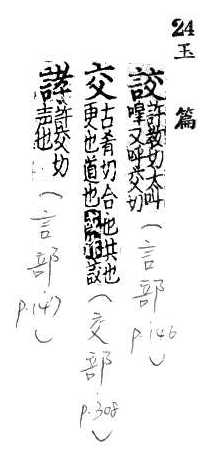 24
玉篇
詨
許教切大叫
嘷又呼交切
(言部 p.146)
交
古肴切合也共也
更也道也
(交部 p.308)
誟
許交切
声也
(言部 p.147)